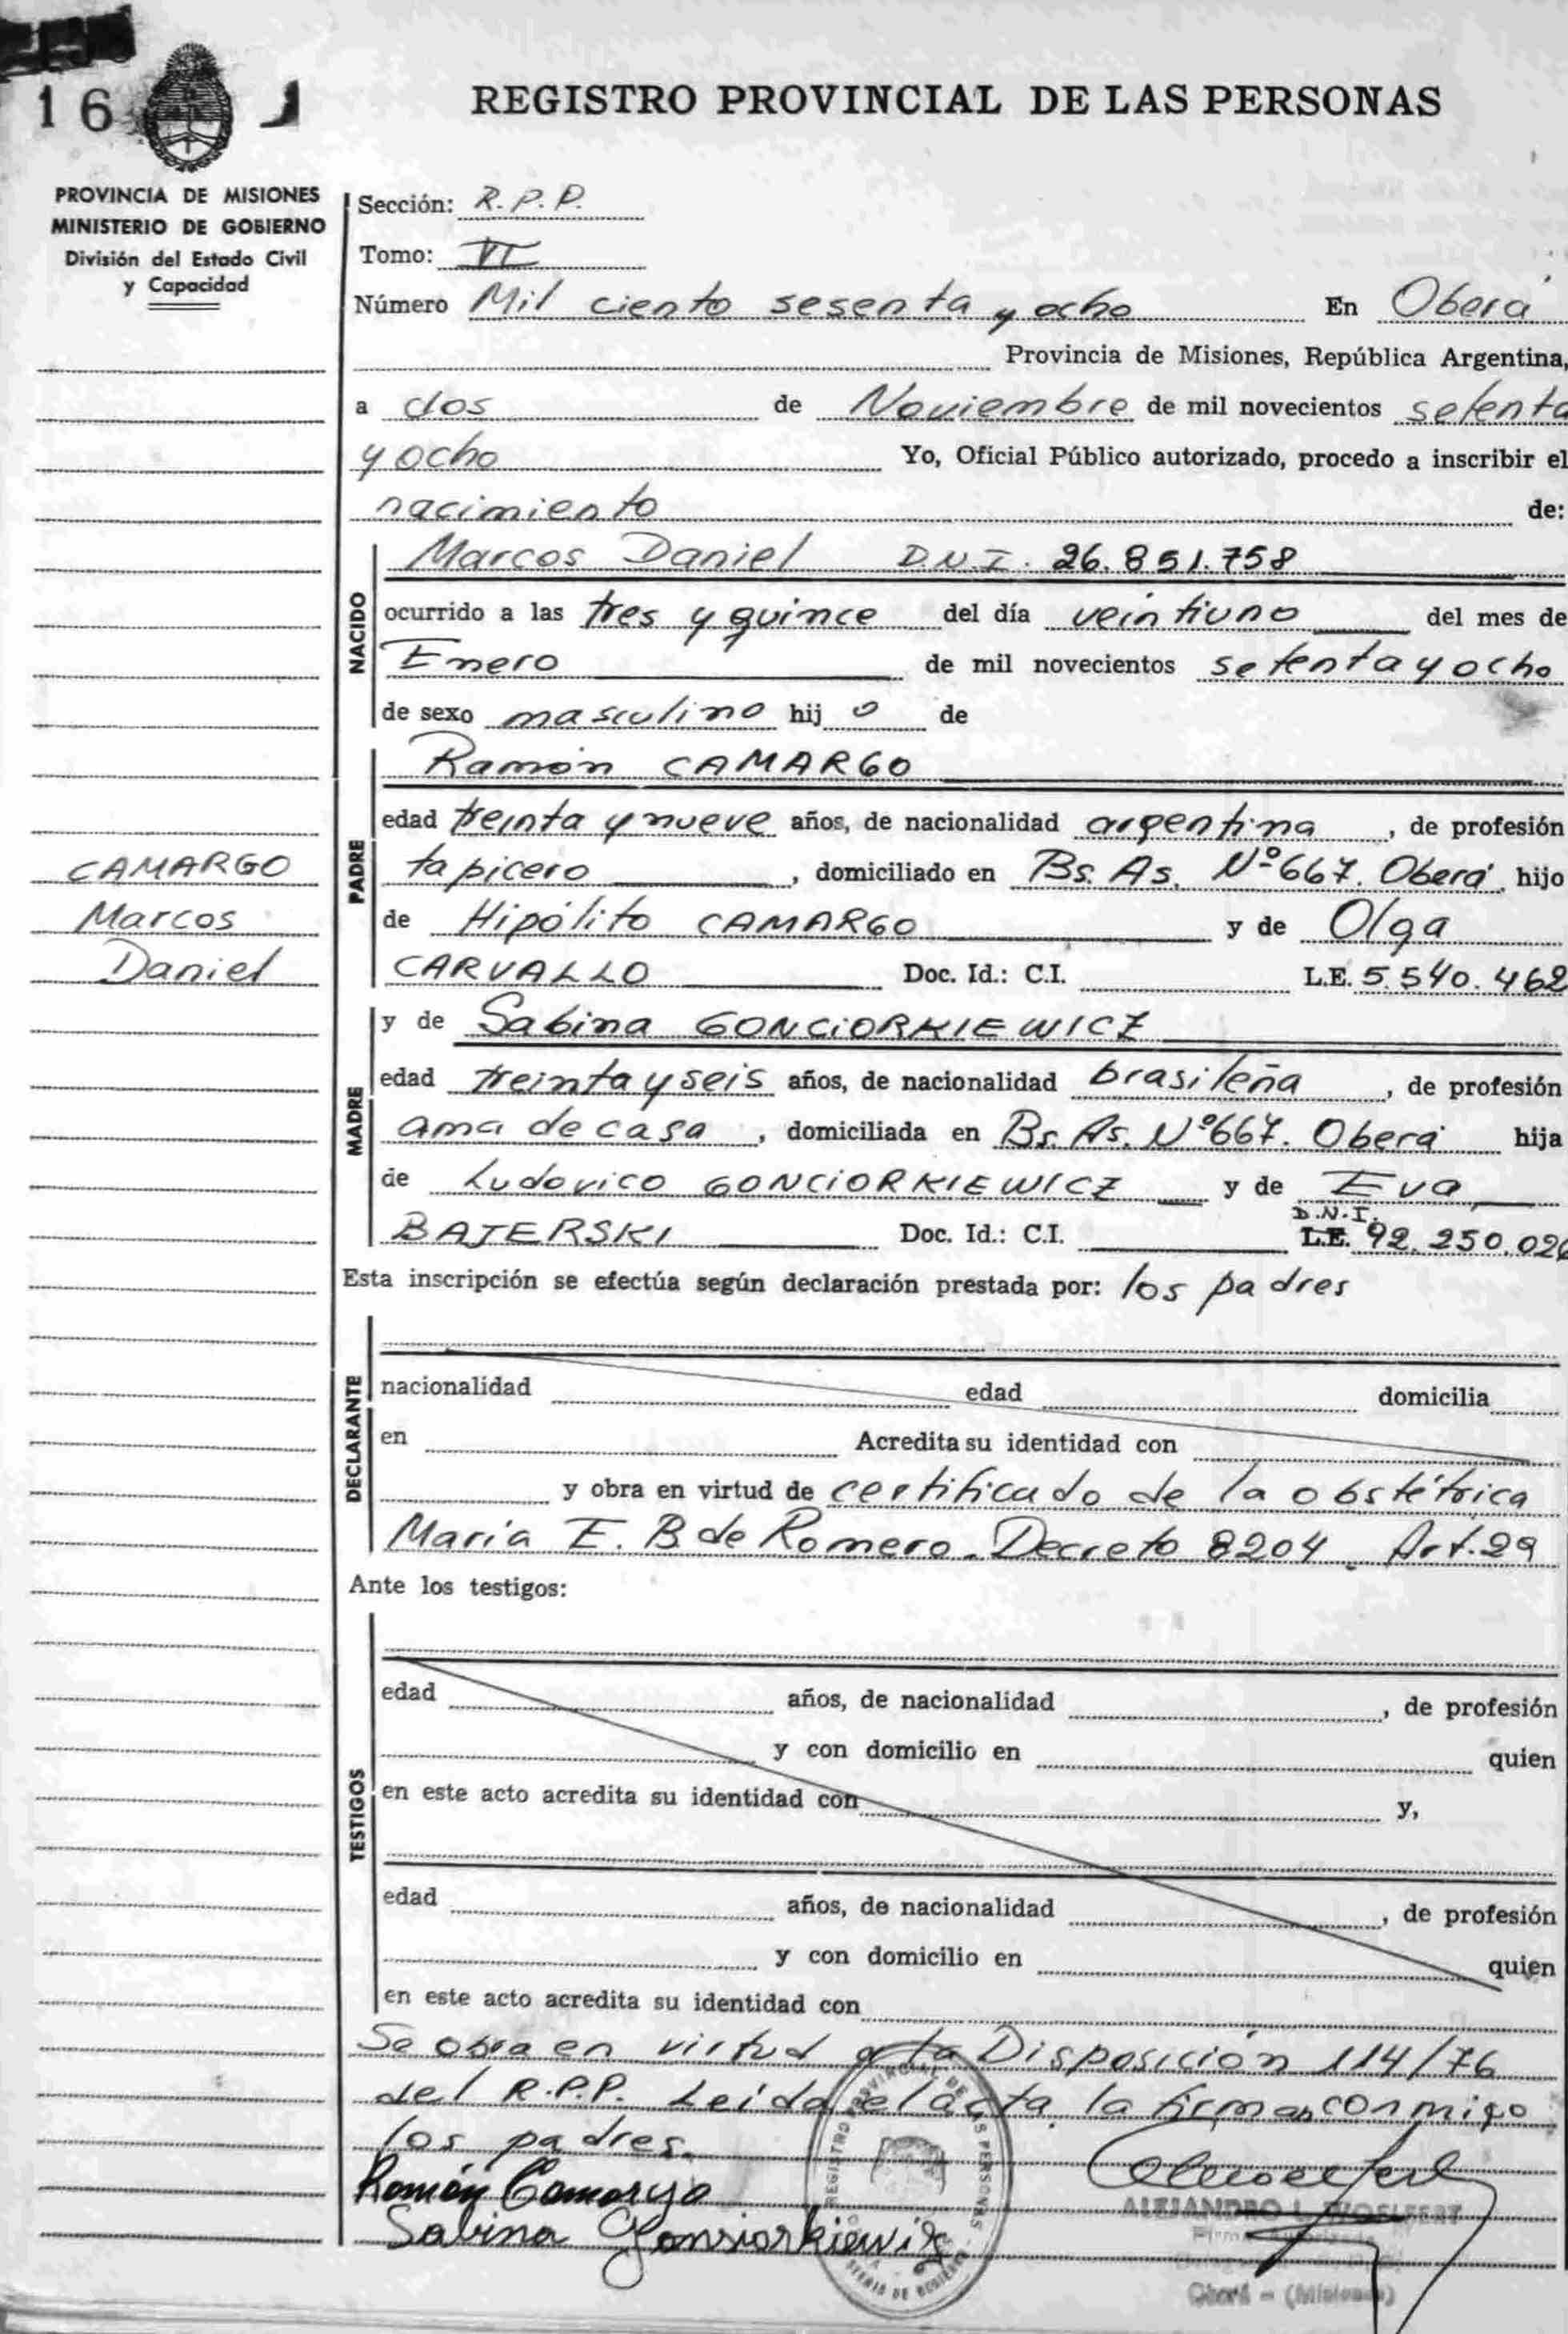 16
REGISTRO PROVINCIAL DE LAS PERSONAS
PROVINCIA DE MISIONES
MINISTERIO DE GOBIERNO
División del Estado Civil
y Capacidad
Sección: R.P.P.
Tomo: VI
Número Mil ciento sesenta y ocho En Oberá
Provincia de Misiones, República Argentina,
a dos de Noviembre de mil novecientos setenta
y ocho Yo, Oficial Público autorizado, procedo a inscribir el
nacimiento de:
NACIDO
Marcos Daniel D.N.I. 26.851.758
ocurrido a las tres y quince del día veintiuno del mes de
Enero de mil novecientos setenta y ocho
de sexo masculino hijo de
PADRE
Ramón CAMARGO
edad treinta y nueve años, de nacionalidad argentina, de profesión
tapicero, domiciliado en Bs. As. Nº 667. Oberá, hijo
de Hipólito CAMARGO y de Olga
CARVALLO Doc. Id.: C.I. L.E. 5.540.462
CAMARGO
Marcos
Daniel
MADRE
y de Sabina GONCIORKIEWICZ
edad treinta y seis años, de nacionalidad brasileña, de profesión
ama de casa, domiciliada en Bs. As. Nº 667. Oberá hija
de Ludovico GONCIORKIEWICZ y de Eva
BAJERSKI Doc. Id.: C.I. D.N.I. L.E. 92.250.026
Esta inscripción se efectúa según declaración prestada por: los padres
DECLARANTE
nacionalidad edad domicilia
en Acredita su identidad con
y obra en virtud de certificado de la obstétrica
María E. B. de Romero. Decreto 8204. Art. 29
Ante los testigos:
TESTIGOS
edad años, de nacionalidad, de profesión
y con domicilio en quien
en este acto acredita su identidad con y,
edad años, de nacionalidad, de profesión
y con domicilio en quien
en este acto acredita su identidad con
Se obra en virtud a la Disposición 114/76
del R.P.P. Leída el acta la firman conmigo
los padres.
Ramón Camargo
Sabina Gonsiorkiewig
REGISTRO PROVINCIAL DE LAS PERSONAS
ALEJANDRO L. WOELFERT
Oberá - (Misiones)